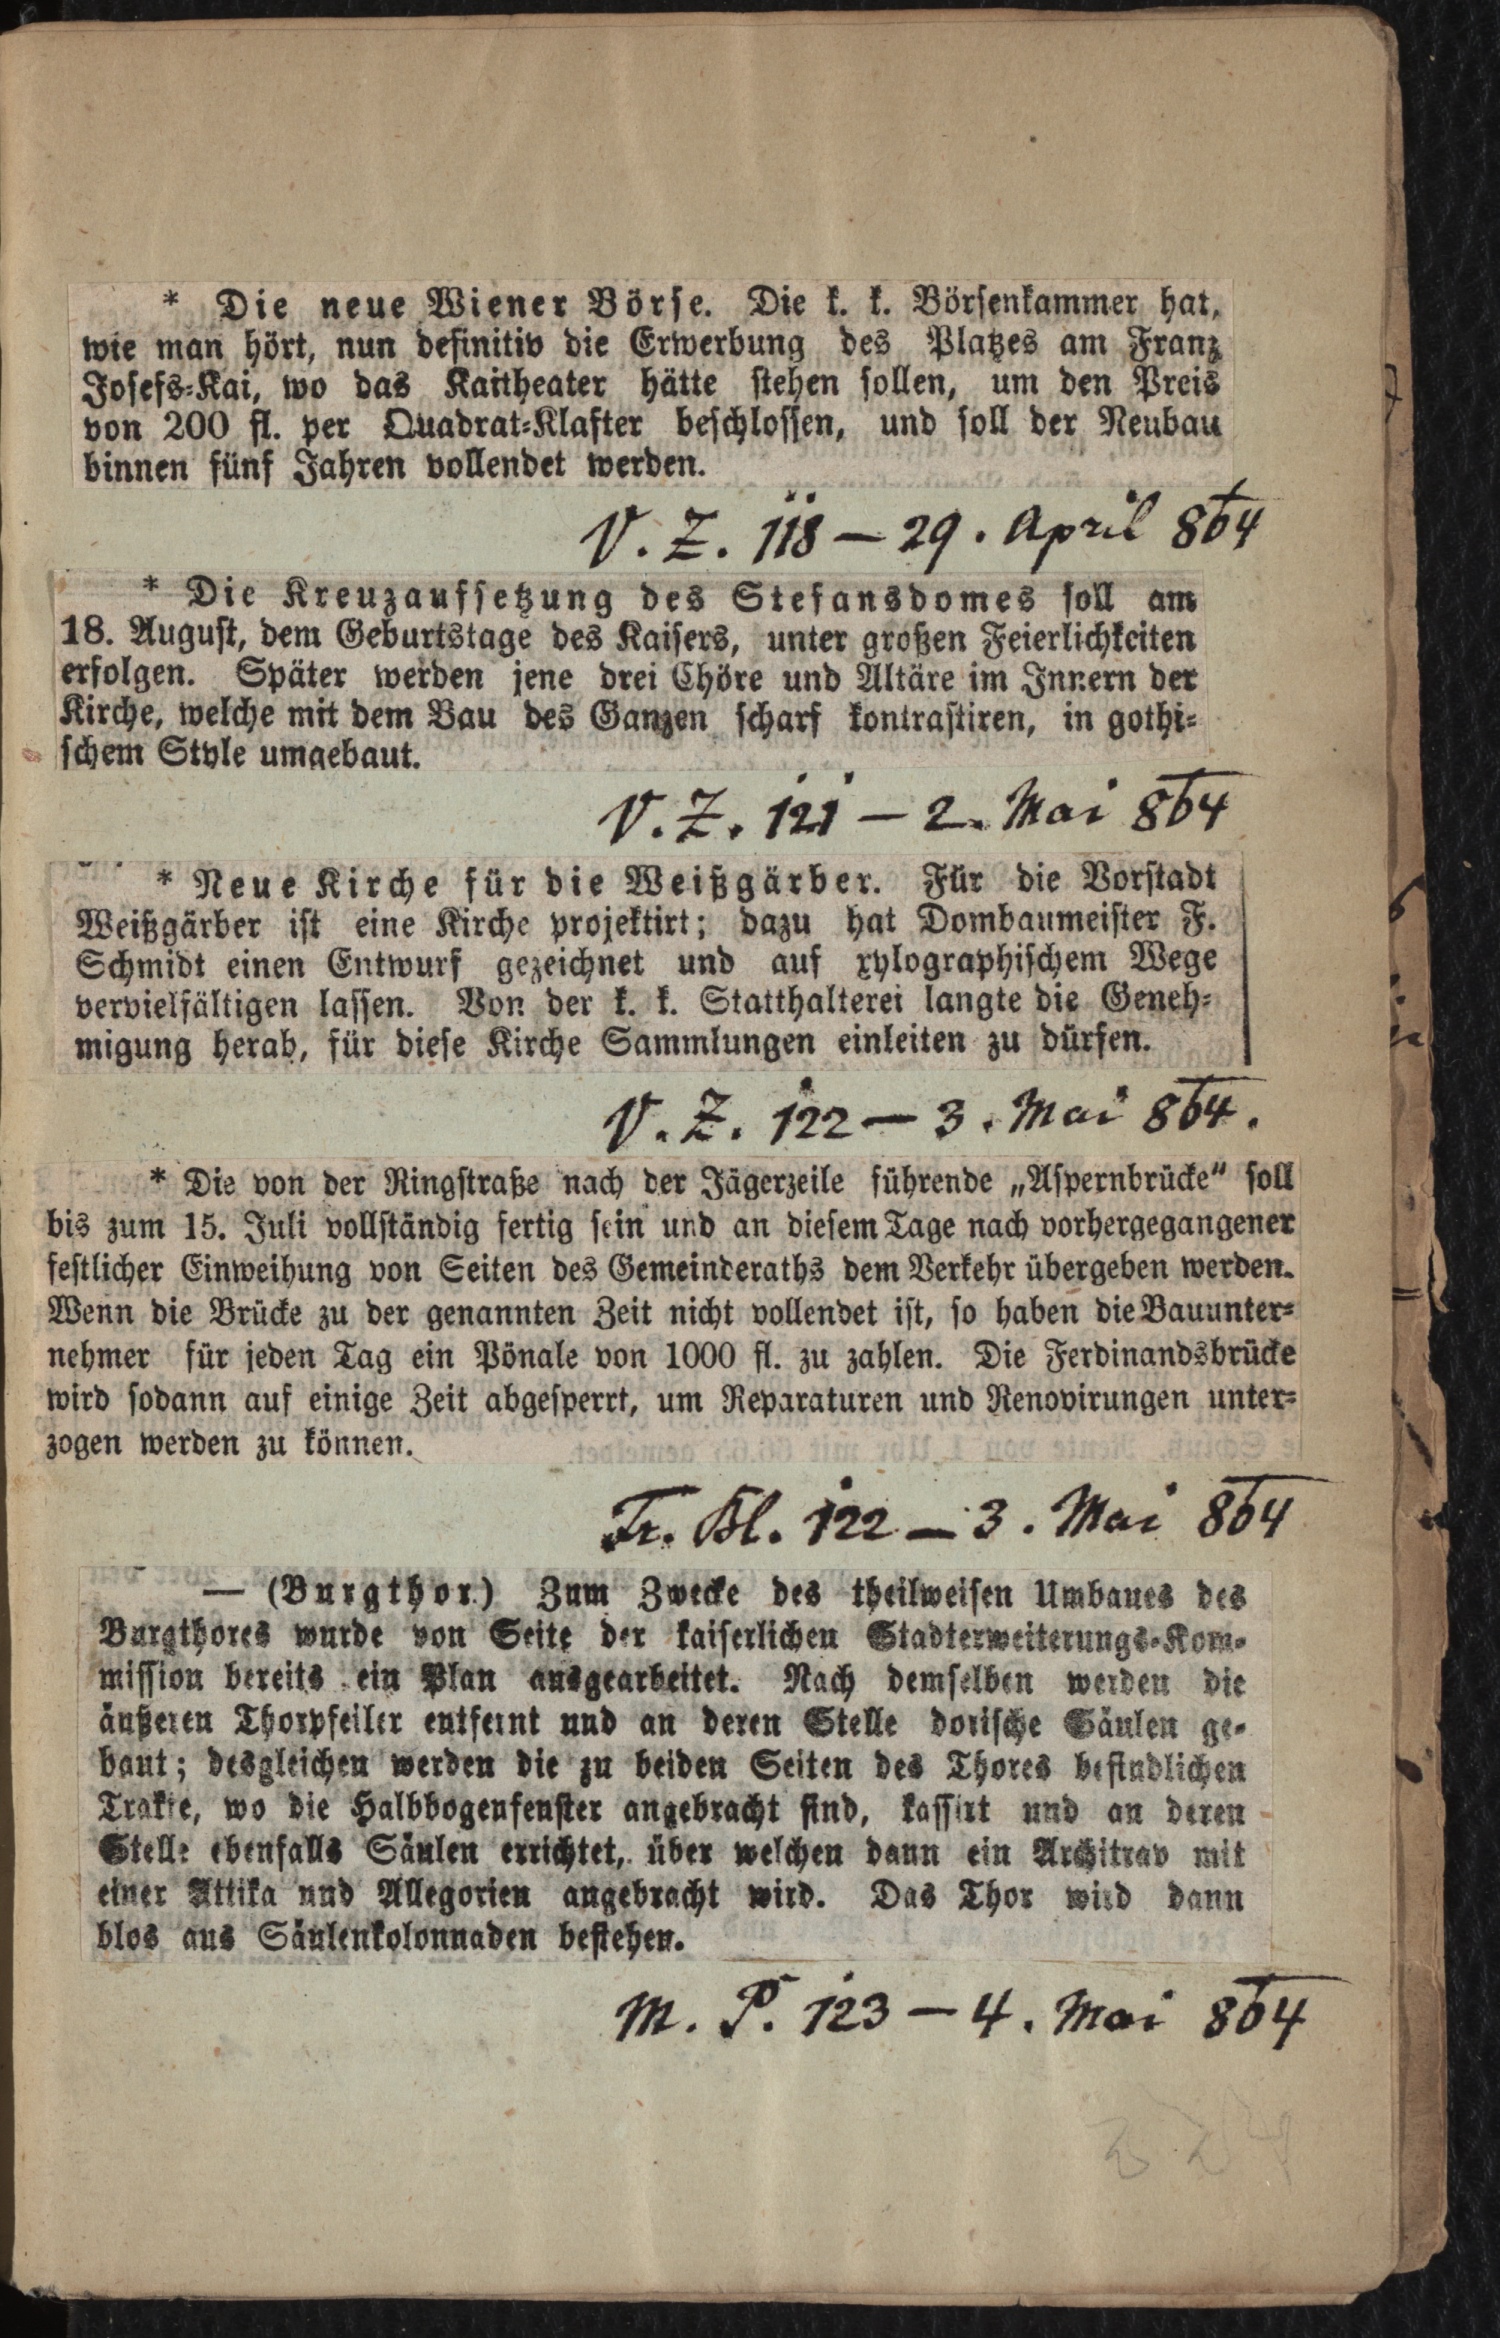 * Die neue Wiener Börse. Die k. k. Börsenkammer hat,
wie man hört, nun definitiv die Erwerbung des Platzes am Franz
Josefs=Kai, wo das Kaitheater hätte stehen sollen, um den Preis
von 200 fl. per Quadrat=Klafter beschlossen, und soll der Neubau
binnen fünf Jahren vollendet werden.
V. Z. 118 — 29. April 864
* Die Kreuzaufsetzung des Stefansdomes soll am
18. August, dem Geburtstage des Kaisers, unter großen Feierlichkeiten
erfolgen. Später werden jene drei Chöre und Altäre im Innern der
Kirche, welche mit dem Bau des Ganzen scharf kontrastiren, in gothi=
schem Style umgebaut.
V. Z. 121 — 2. Mai 864
* Neue Kirche für die Weißgärber. Für die Vorstadt
Weißgärber ist eine Kirche projektirt; dazu hat Dombaumeister F.
Schmidt einen Entwurf gezeichnet und auf xylographischem Wege
vervielfältigen lassen. Von der k. k. Statthalterei langte die Geneh=
migung herab, für diese Kirche Sammlungen einleiten zu dürfen.
V. Z. 122 — 3. Mai 864.
* Die von der Ringstraße nach der Jägerzeile führende „Aspernbrücke" soll
bis zum 15. Juli vollständig fertig sein und an diesem Tage nach vorhergegangener
festlicher Einweihung von Seiten des Gemeinderaths dem Verkehr übergeben werden.
Wenn die Brücke zu der genannten Zeit nicht vollendet ist, so haben die Bauunter=
nehmer für jeden Tag ein Pönale von 1000 fl. zu zahlen. Die Ferdinandsbrücke
wird sodann auf einige Zeit abgesperrt, um Reparaturen und Renovirungen unter=
zogen werden zu können.
Fr. Bl. 122 — 3. Mai 864
— (Burgthor.) Zum Zwecke des theilweisen Umbaues des
Burgthores wurde von Seite der kaiserlichen Stadterweiterungs=Kom=
mission bereits ein Plan ausgearbeitet. Nach demselben werden die
äußeren Thorpfeiler entfernt und an deren Stelle dorische Säulen ge=
baut; desgleichen werden die zu beiden Seiten des Thores befindlichen
Trakte, wo die Halbbogenfenster angebracht sind, kassirt und an deren
Stelle ebenfalls Säulen errichtet, über welchen dann ein Architrav mit
einer Attika und Allegorien angebracht wird. Das Thor wird dann
blos aus Säulenkolonnaden bestehen.
M. P. 123 — 4. Mai 864